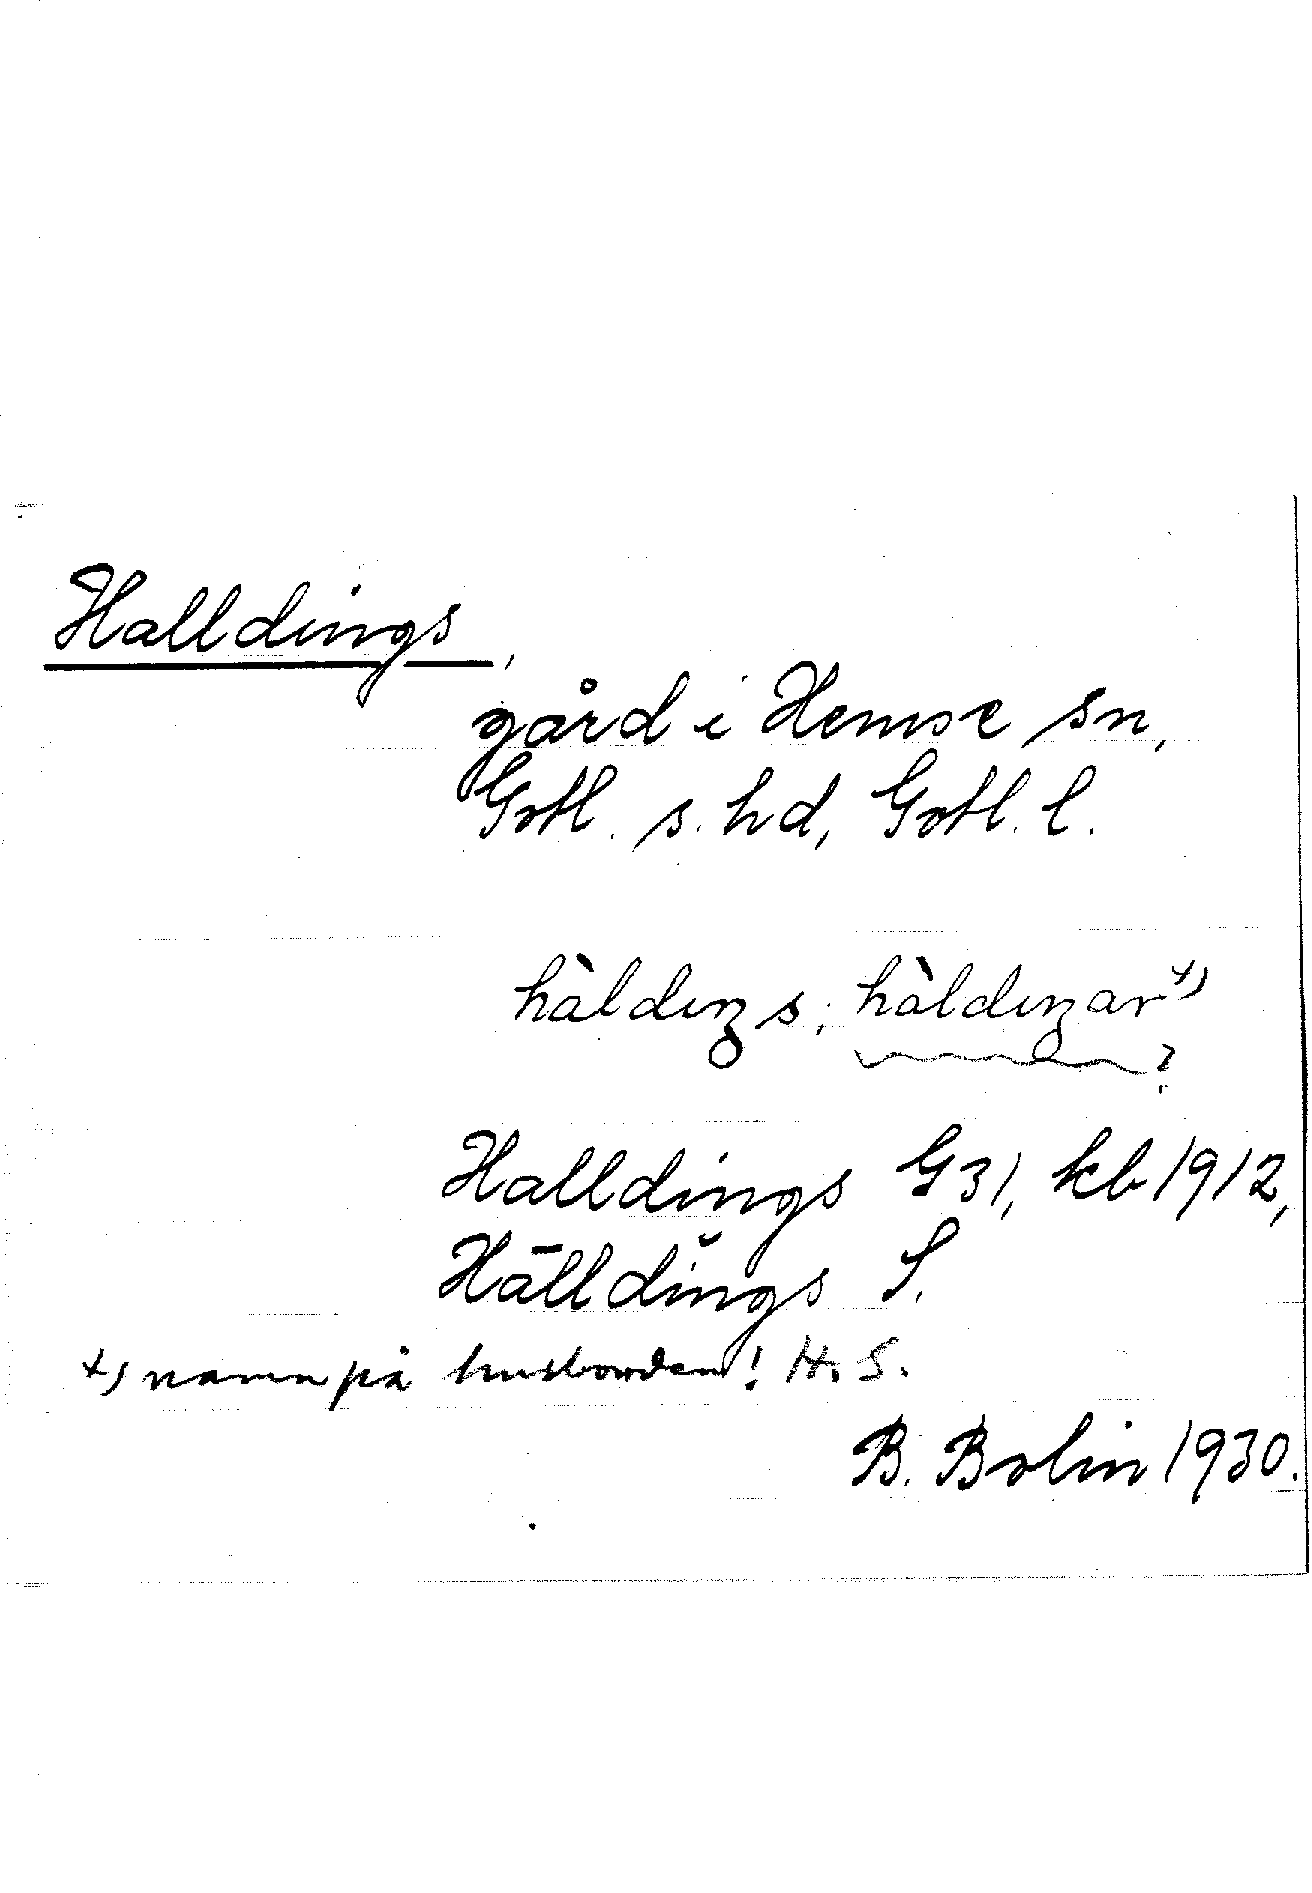 Halldings,
gård i Hemse sn,
Gotl. s. hd, Gotl. l.
hàldıŋs; hàldıŋar +)
?
Halldings G31, kb 1912,
Hālldĭngs S.
+) namn på husbonden! H. S.
B. Bolin 1930.